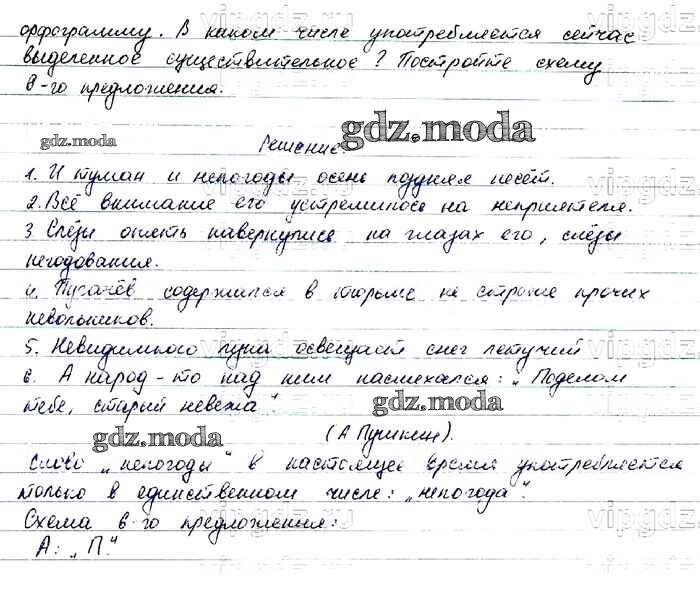 орфограмму. В каком числе употребляется сейчас
выделенное существительное? Постройте схему
6-го предложения.
gdz.moda
gdz.moda
Решение.
1. И туман и непогоды осень поздняя несёт.
2. Всё внимание его устремилось на неприятеля.
3 Слёзы опять навернулись на глазах его, слёзы
негодования.
4. Пугачёв содержался в тюрьме не строже прочих
невольников.
5. Невидимкою луна освещает снег летучий
6. А народ-то над ним насмехался: „Поделом
тебе, старый невежа".
gdz.moda
gdz.moda
(А Пушкин).
Слово „непогоды" в настоящее время употребляется
только в единственном числе: „непогода".
Схема 6-го предложения:
А: „П."
vipgdz.ru
vipgdz.ru
vipgdz.ru
vipgdz.ru